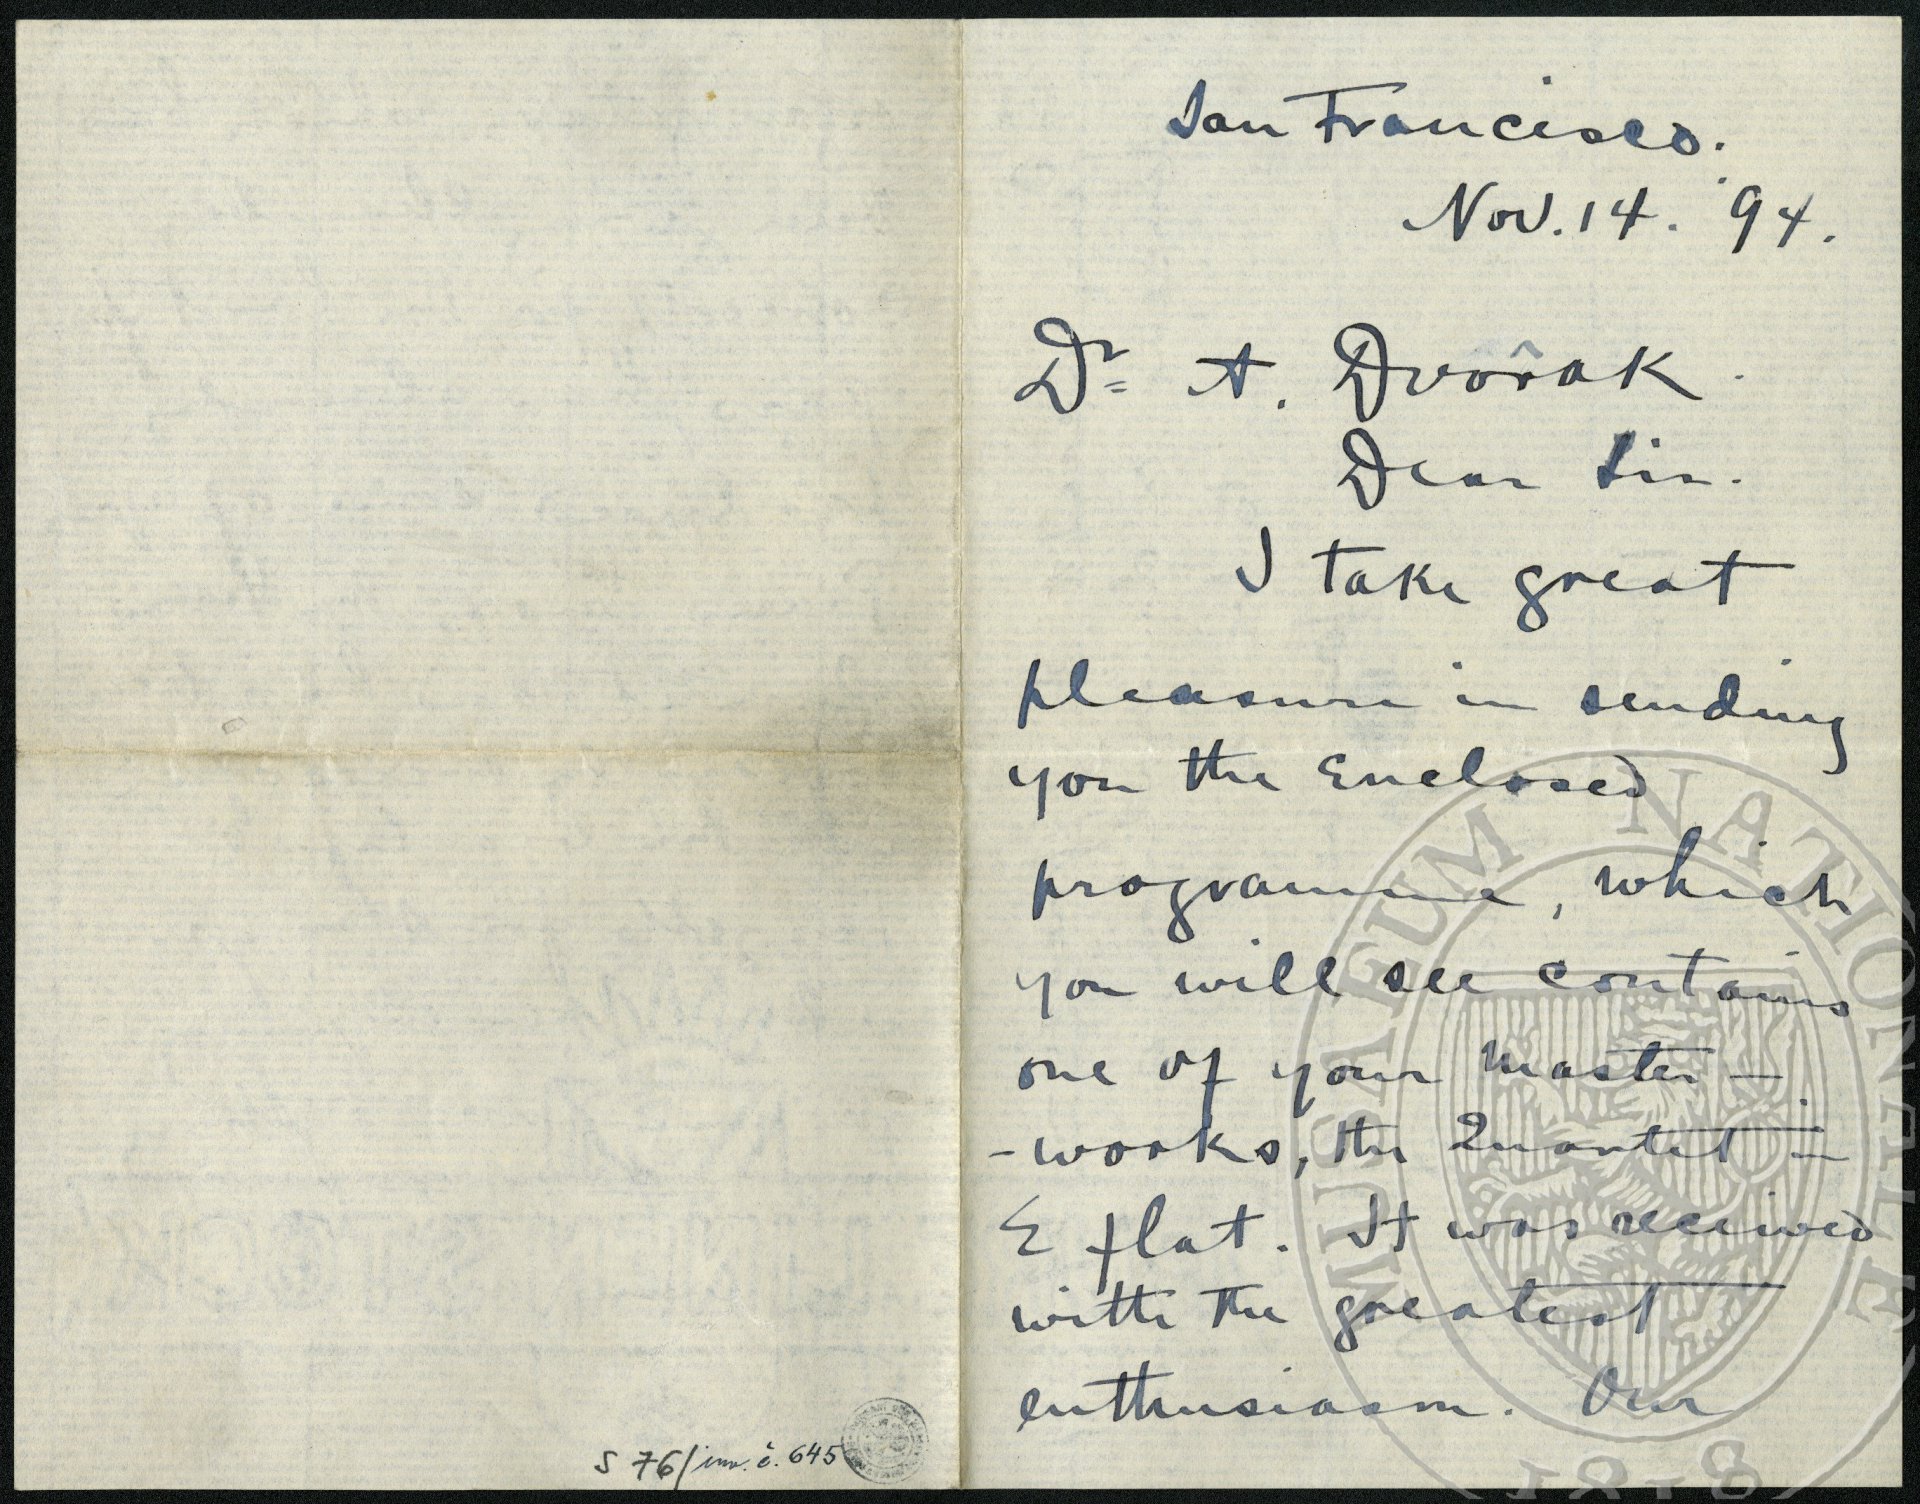 San Francisco.
Nov. 14. '94.
Dr. A. Dvořak.
Dear Sir.
I take great
pleasure in sending
you the Enclosed
programme, which
you will see contains
one of your Master-
-works, the Quartet -
E flat. It was received
with the greatest
enthusiasm. Our
S 76/inv. č. 645
MUSAEUM NATIONALE
1818